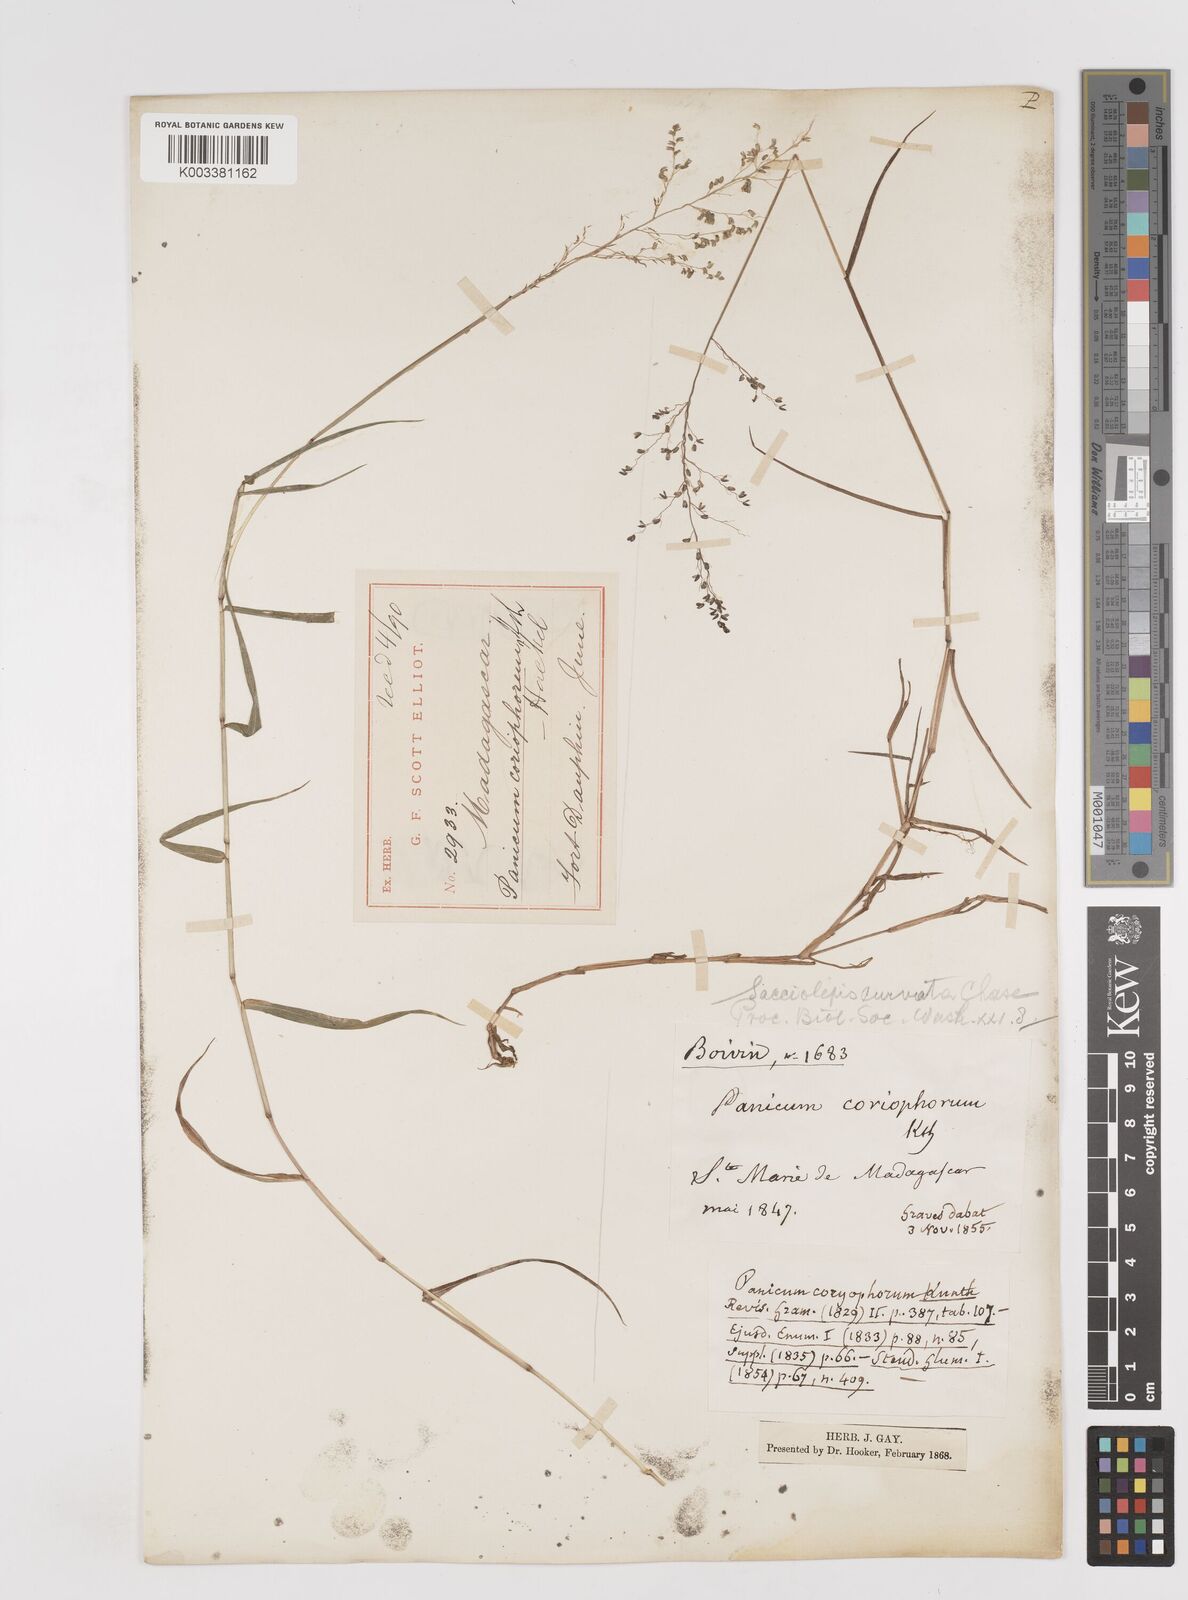 P
ROYAL BOTANIC GARDENS KEW
K003381162
Recd 4/90
Ex. HERB.
G. F. SCOTT ELLIOT.
No. 2933.
Madagascar
Panicum coriophorum Kth
— Hackel
Fort Dauphin. June.
Sacciolepis curvata Chase
Proc. Biol. Soc. Wash. XXI. 8.
Boivin, n. 1683
Panicum coriophorum
Kth
Ste Marie de Madagascar
mai 1847.
Graves dabat
3 Nov. 1855.
Panicum coryophorum Kunth
Revis. Gram. (1829) II. p. 387, tab. 107. —
Ejusd. Enum. I (1833) p. 88, n. 85,
Suppl. (1835) p. 66. — Steud. Glum. I.
(1854) p. 67, n. 409.
HERB. J. GAY.
Presented by Dr. Hooker, February 1868.
inches
centimeters
Density
Don Williams
M001047
Kew
Royal Botanic Gardens
copyright reserved
0 1 2 3 4 5 6 7 8 9 10
cm